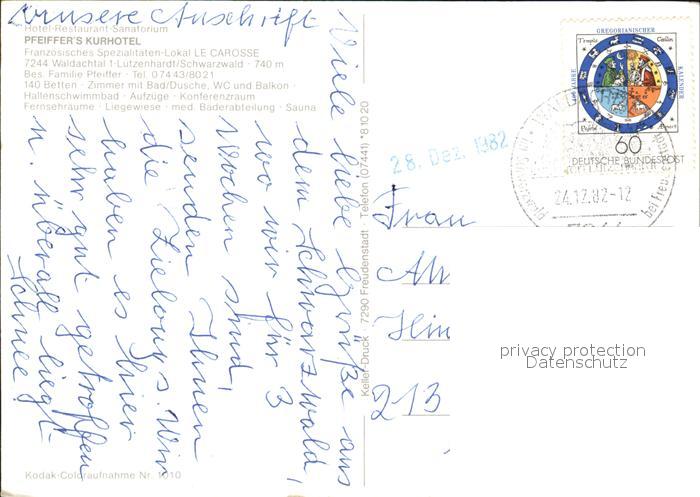 Unsere Anschrift
Hotel-Restaurant-Sanatorium
PFEIFFER'S KURHOTEL
Französisches Spezialitäten-Lokal LE CAROSSE
7244 Waldachtal 1-Lützenhardt/Schwarzwald · 740 m
Bes. Familie Pfeiffer · Tel. 07443/8021
140 Betten · Zimmer mit Bad/Dusche, WC und Balkon ·
Hallenschwimmbad · Aufzüge · Konferenzraum
Fernsehräume · Liegewiese · med. Bäderabteilung · Sauna
Viele liebe Grüße aus
dem Schwarzwald,
wo wir für 3
Wochen sind,
senden Ihnen
die Zielongs. Wir
haben es hier
sehr gut getroffen
u. überall liegt
Schnee!
Kodak-Coloraufnahme Nr. 1010
Keller-Druck · 7290 Freudenstadt · Telefon (07441) *81020
GREGORIANISCHER
KALENDER
60
DEUTSCHE BUNDESPOST
24.12.82-12
bei Freudenstadt
28. Dez. 1982
Frau
Hin
213
privacy protection
Datenschutz